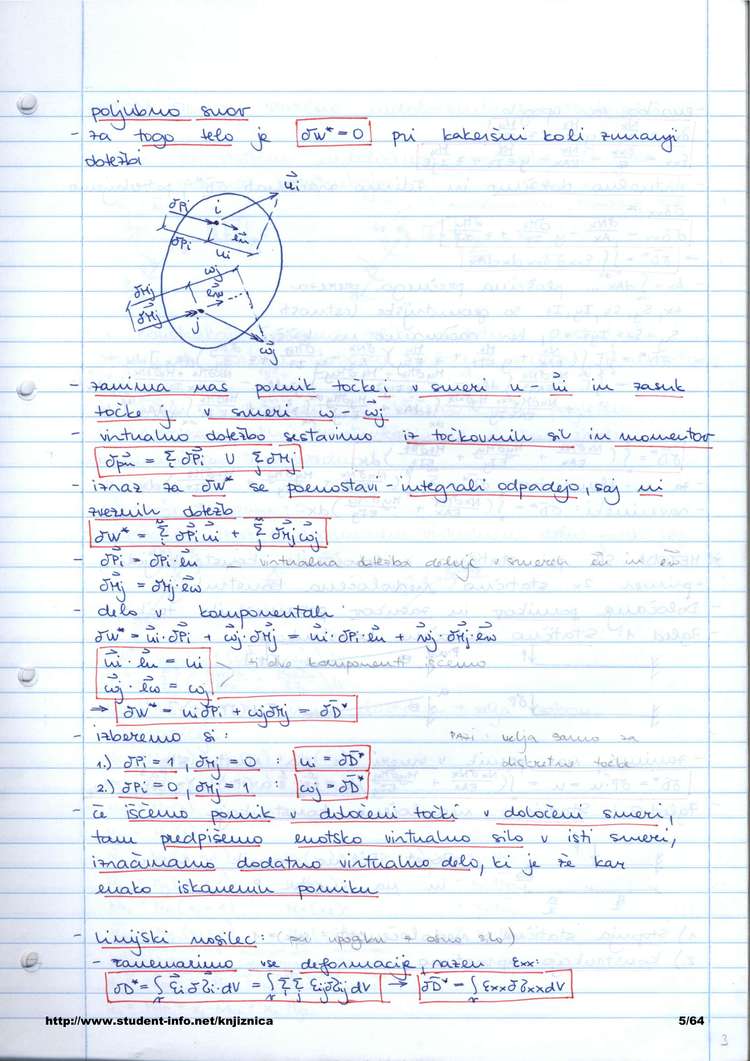 poljubno snov
- za togo telo je δW* = 0 pri kakeršni koli zunanji
obtežbi
u⃗i
δPi i
e⃗u
δPi
ui
ωj
δMj e⃗ω
δM⃗j
j
ω⃗j
- zanima nas pomik točke i v smeri u - u⃗i in zasuk
točke j v smeri ω - ω⃗j
- virtualno obtežbo sestavimo iz točkovnih sil in momentov
δp⃗n = Σi δP⃗i ∪ Σj δM⃗j
- izraz za δW* se poenostavi - integrali odpadejo, saj ni
zveznih obtežb
δW* = Σi δP⃗i u⃗i + Σj δM⃗j ω⃗j
- δP⃗i = δPi · e⃗u – virtualna obtežba deluje v smereh e⃗u in e⃗ω
δM⃗j = δMj · e⃗ω
- delo v komponentah:
δW* = u⃗i · δP⃗i + ω⃗j · δM⃗j = u⃗i · δPi · e⃗u + ω⃗j · δMj · e⃗ω
u⃗i · e⃗u = ui
ti dve komponenti iščemo
ω⃗j · e⃗ω = ωj
→ δW* = ui δPi + ωj δMj = δD̄*
- izberemo si: PAZI: velja samo za
1.) δPi = 1, δMj = 0 : ui = δD̄* diskretne točke
2.) δPi = 0, δMj = 1 : ωj = δD̄*
- če iščemo pomik v določeni točki v določeni smeri,
tam predpišemo enotsko virtualno silo v isti smeri,
izračunamo dodatno virtualno delo, ki je že kar
enako iskanemu pomiku
- linijski nosilec: (pri upogibu z osno silo)
- zanemarimo vse deformacije, razen εxx:
δD* = ∫v ε⃗i δσ⃗i · dV = ∫v Σi Σj εij δσij dV → δD̄* = ∫v εxx δσxx dV
http://www.student-info.net/knjiznica 5/64
3